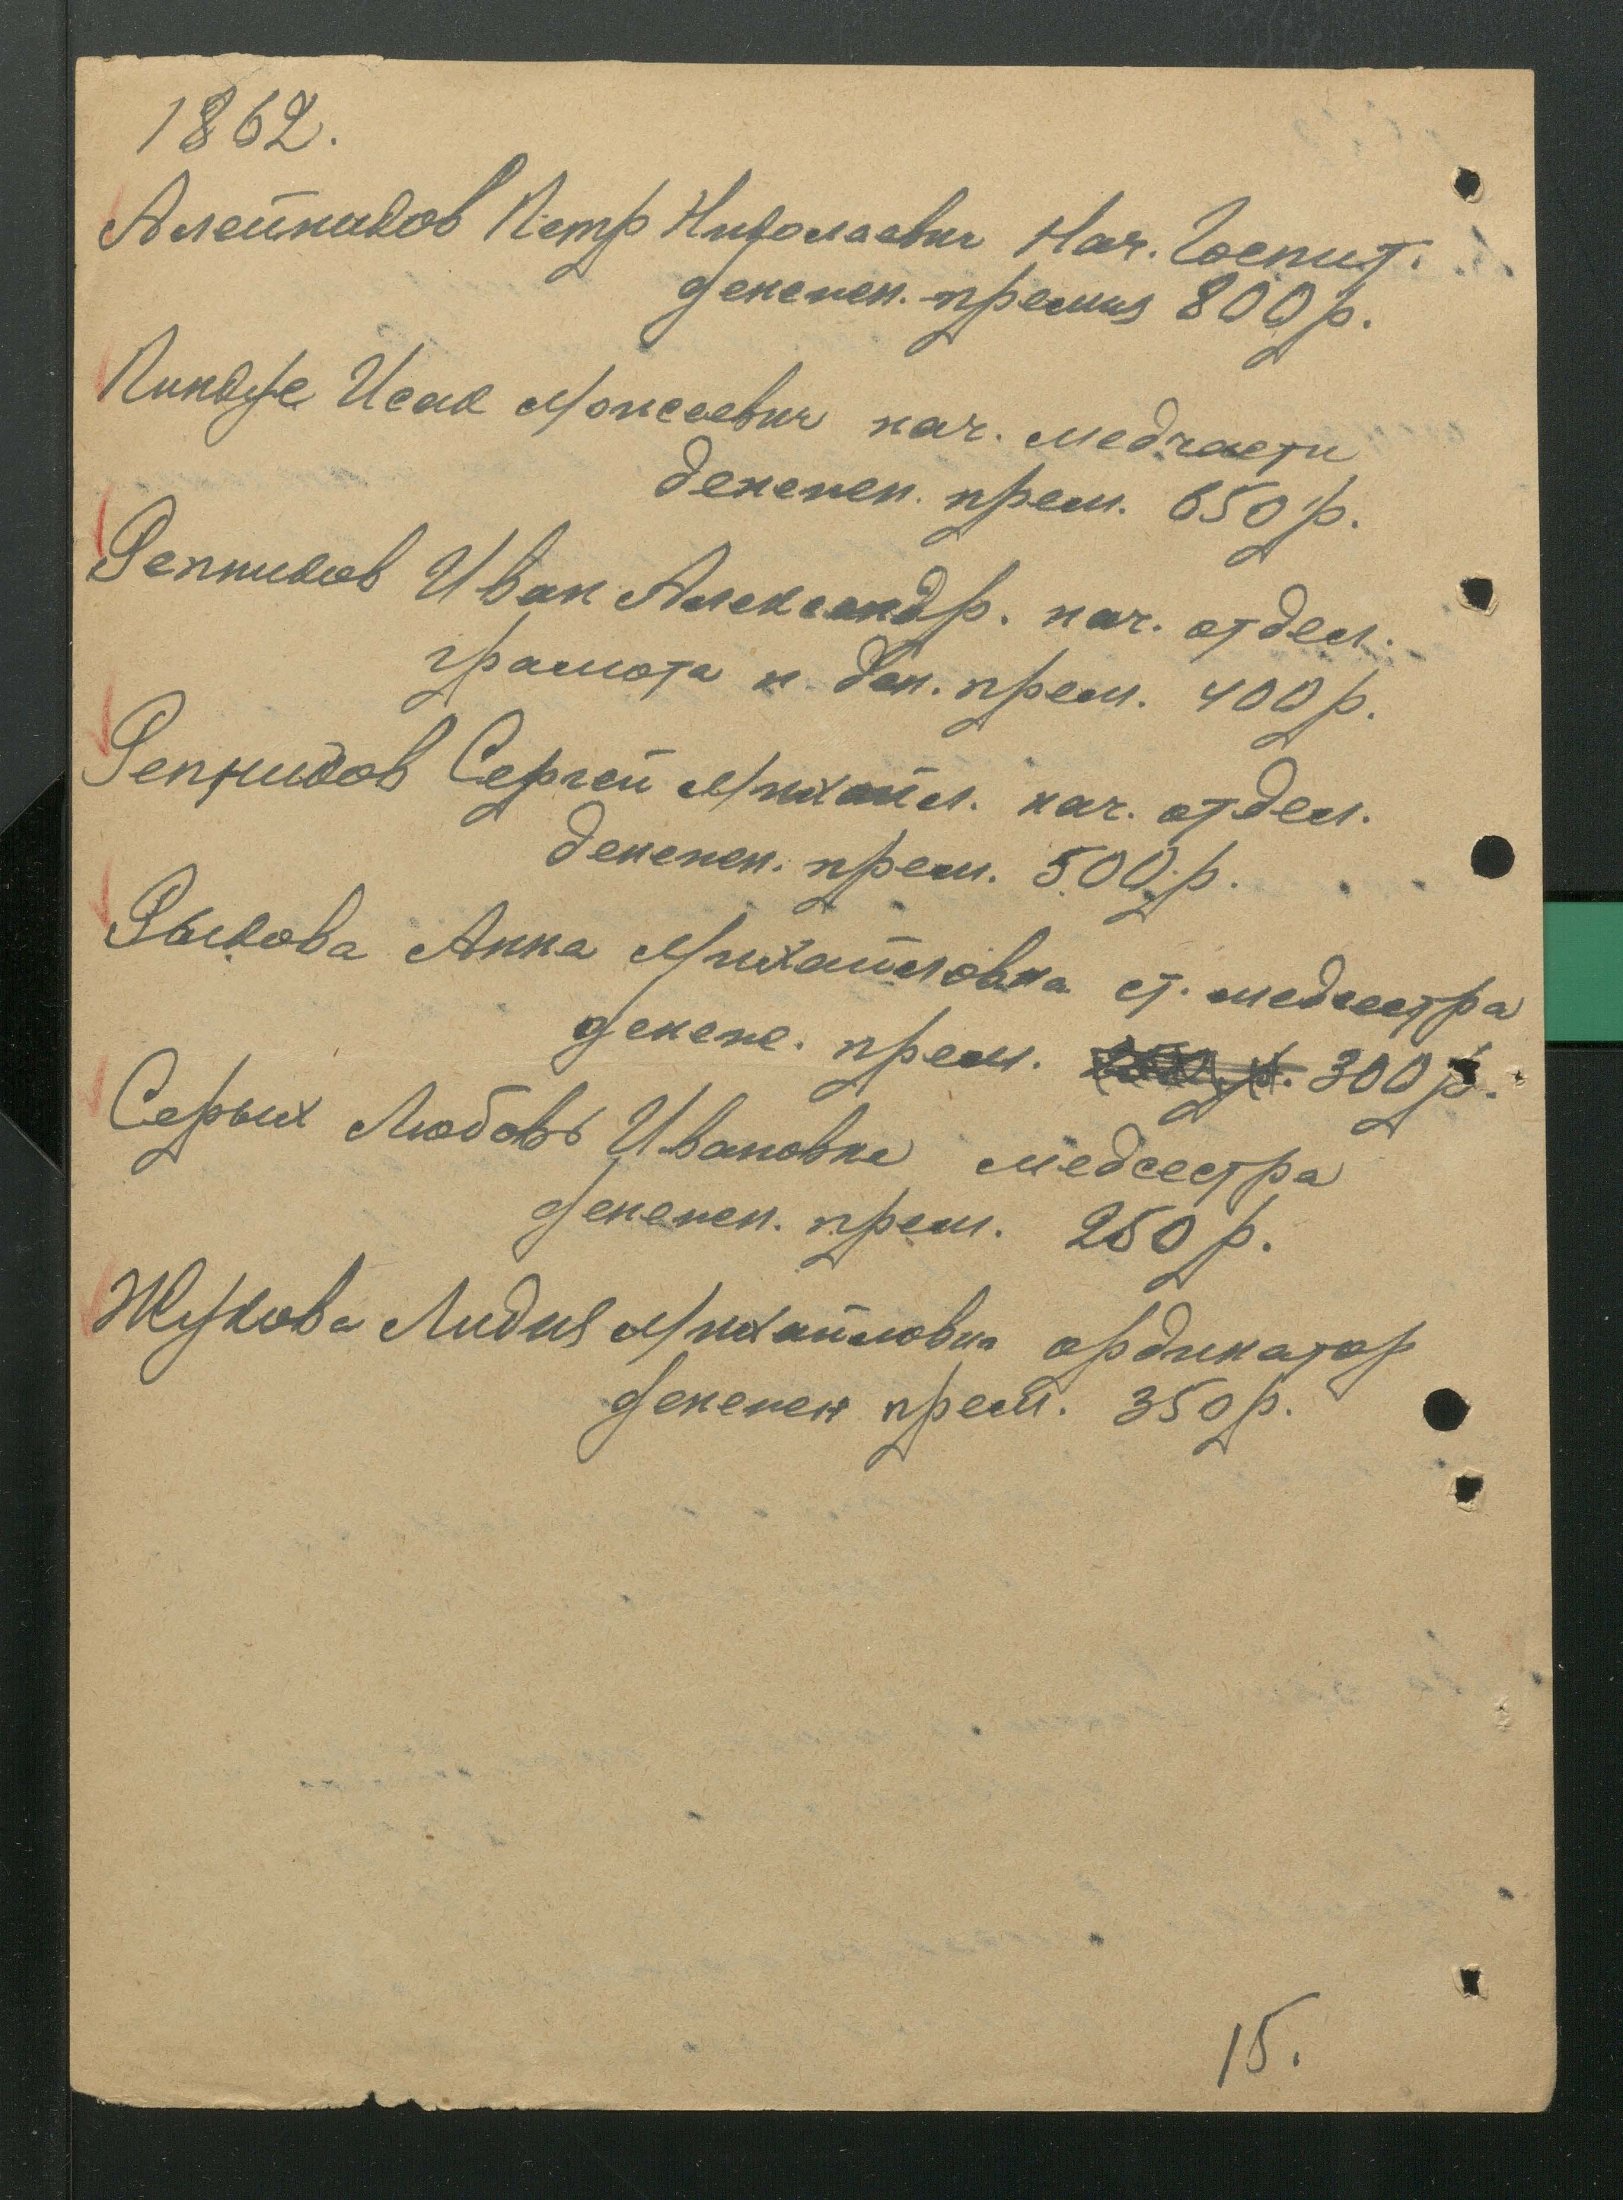 1862.
Алейников Петр Николаевич Нач. Госпит.
денежн. премия 800 р.
Исак Моисеевич нач. медчасти
денежн. прем. 650 р.
Репников Иван Александр. нач. отдел.
грамота и ден. прем. 400 р.
Репников Сергей Михайл. нач. отдел.
денежн. прем. 500 р.
Рыкова Анна Михайловна ст. медсестра
денежн. прем. 300 р.
Серых Любовь Ивановна медсестра
денежн. прем. 250 р.
Жукова Лидия Михайловна ординатор
денежн прем. 350 р.
15.